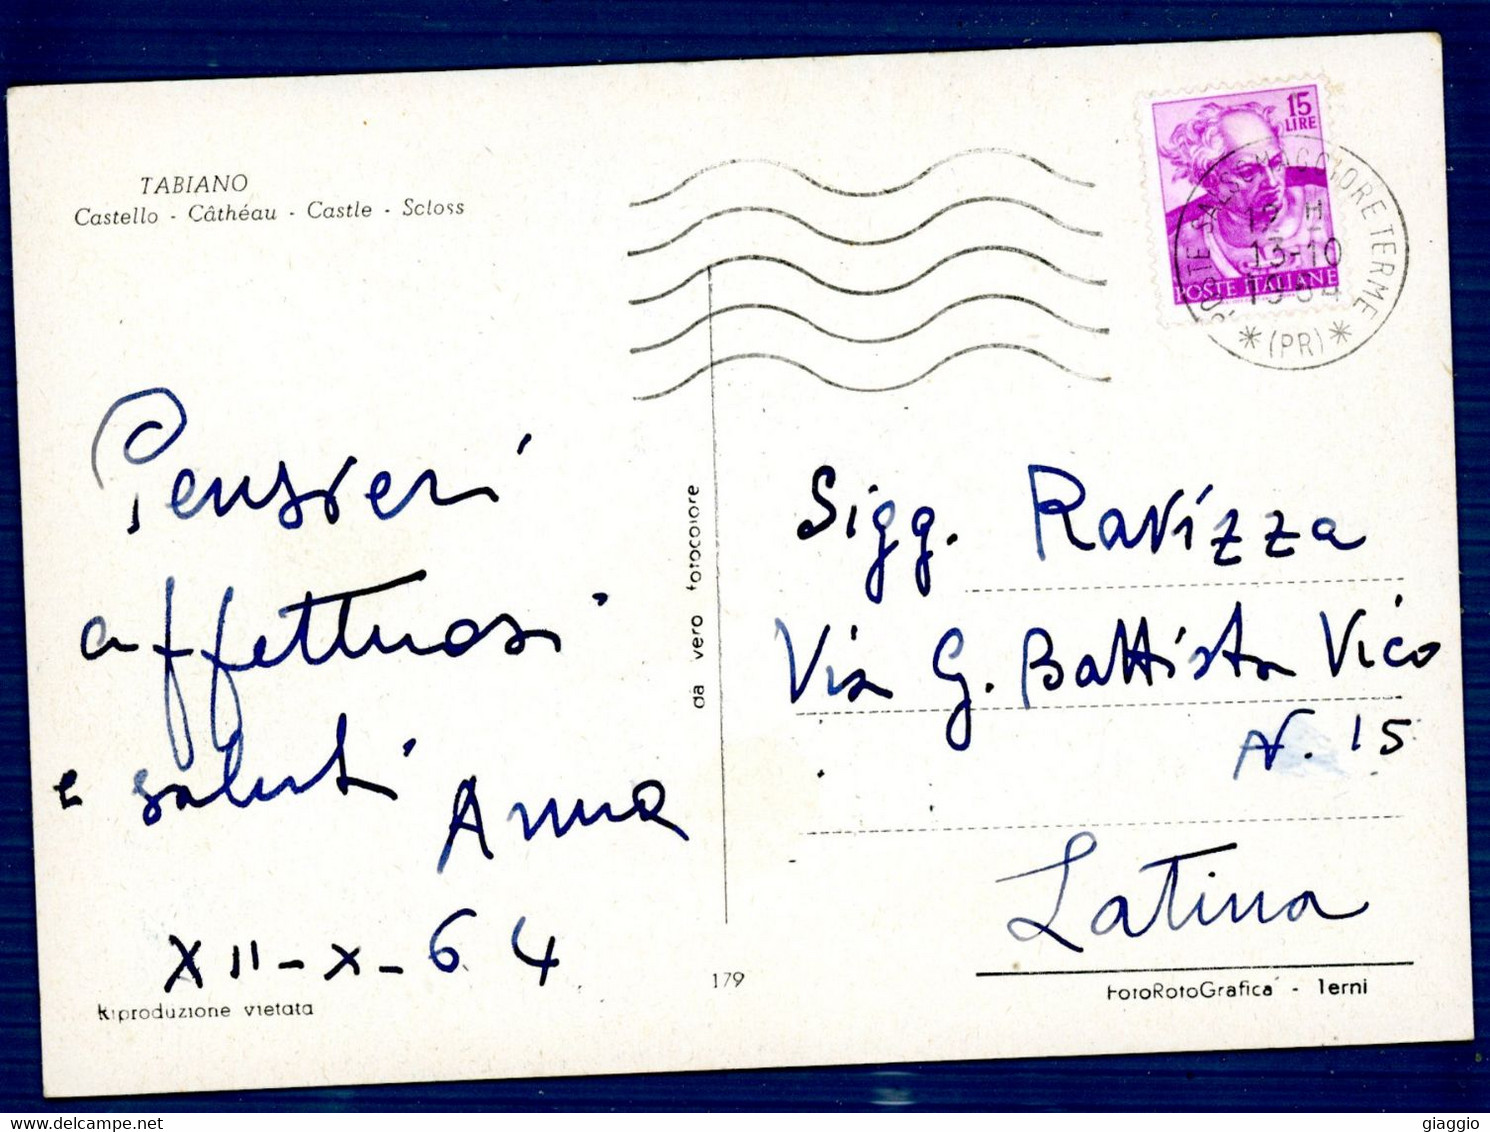 TABIANO
Castello - Câthéau - Castle - Scloss
15
LIRE
POSTE ITALIANE
POSTE SALSOMAGGIORE TERME
12 H
13-10
1964
* (PR) *
Pensieri
affettuosi
e saluti
Anna
XII-X-64
Riproduzione vietata
da vero fotocolore
179
Sigg. Ravizza
Via G. Battista Vico
N. 15
Latina
FotoRotoGrafica - Terni
giaggio